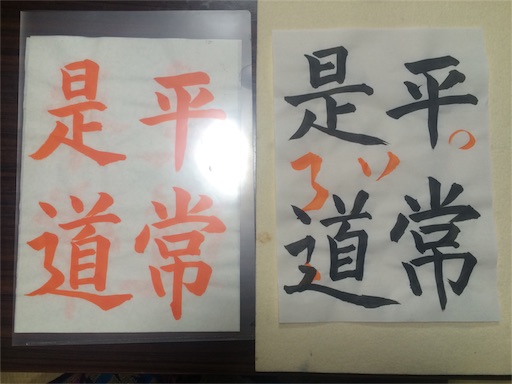 平常
是道
平常
是道